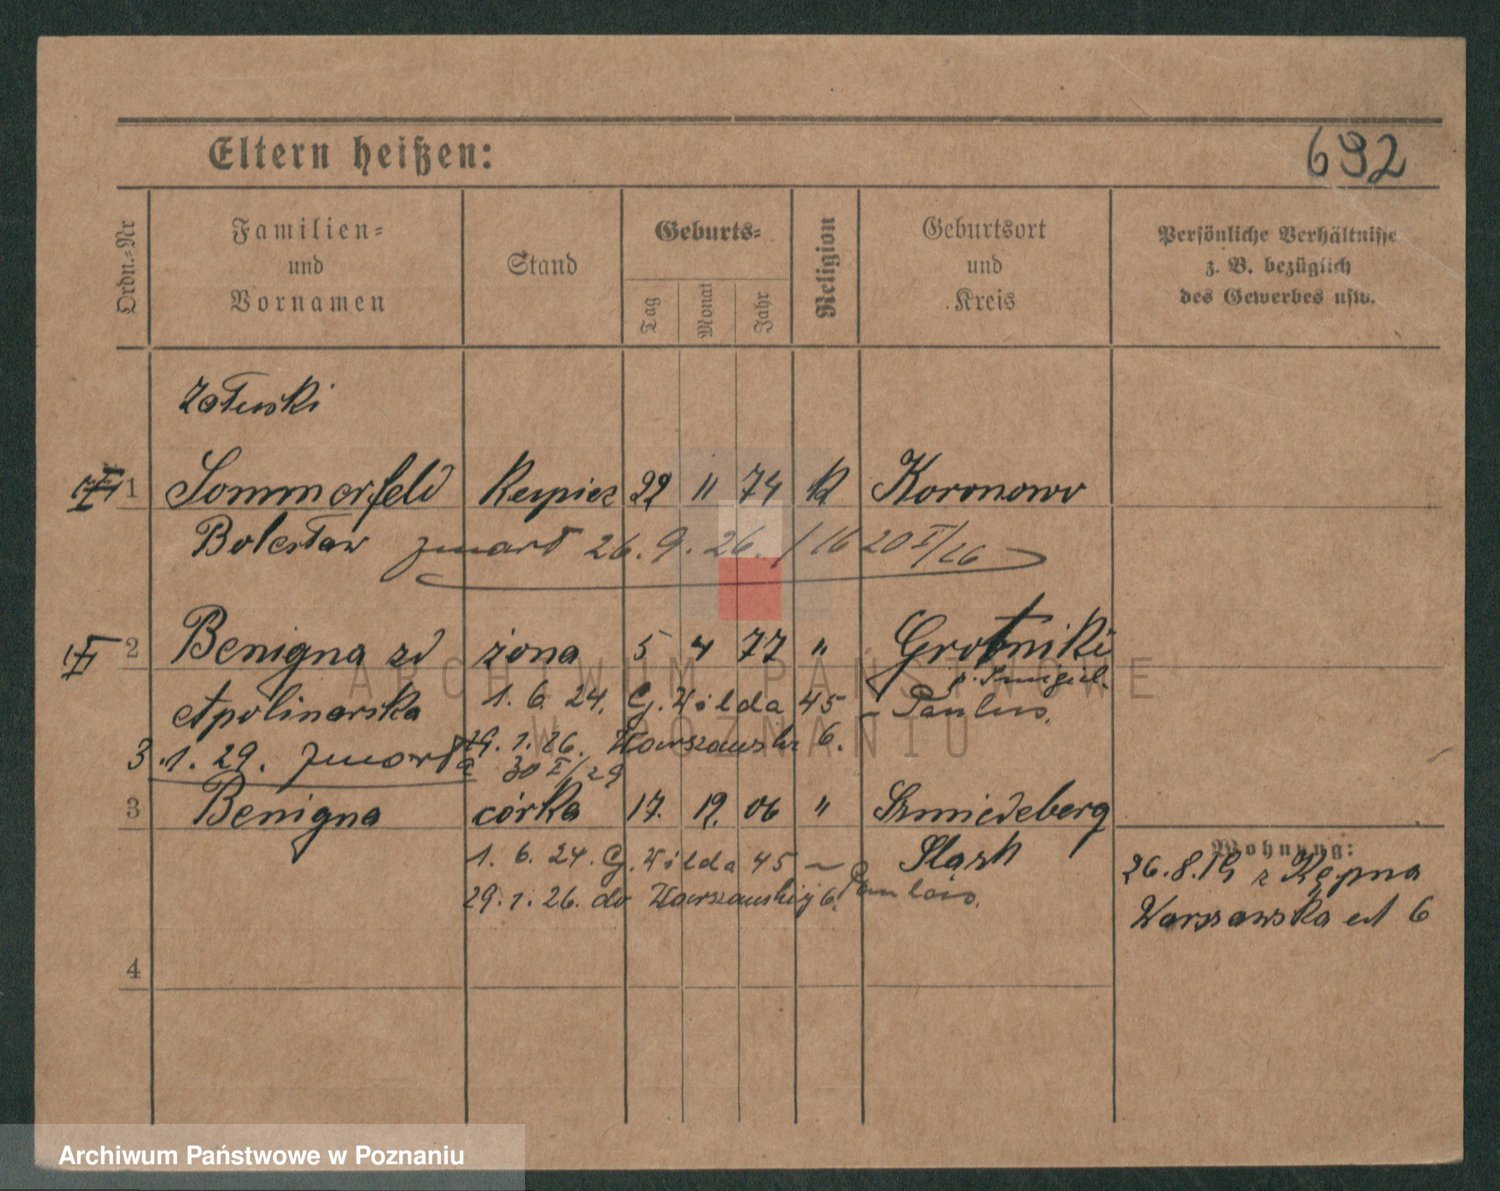 Eltern heißen:
692
Ordn.-Nr
Familien- und Vornamen
Stand
Geburts-
Tag
Monat
Jahr
Religion
Geburtsort und Kreis
Persönliche Verhältnisse z. B. bezüglich des Gewerbes usw.
Załuski
1 Sommerfeld Kupiec 22 11 74 k Koronowo
Bolesław zmarł 26. 9. 26. / 16 20 I/26
2 Benigna zd żona 5 4 77 " Grotniki
Apolinarska 1. 6. 24. G. Wilda 45 - Paulus.
29. 1. 26. Warszawska 6.
3. 1. 29. zmarła 30 I/29
3 Benigna córka 17. 12. 06 " Szmiedeberg
1. 6. 24. G. Wilda 45 Śląsk
29. 1. 26. do Warszawskiej 6.
Wohnung:
26. 8. 19 z Kępna
Warszawska 6
4
ARCHIWUM PAŃSTWOWE
W POZNANIU
Archiwum Państwowe w Poznaniu